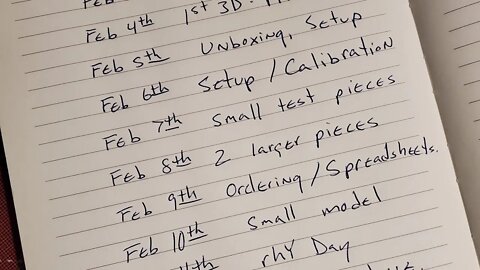 Feb 4th 1st 3D
Feb 5th Unboxing, Setup
Feb 6th Setup / Calibration
Feb 7th Small test pieces
Feb 8th 2 larger pieces
Feb 9th Ordering / Spreadsheets.
Feb 10th small model
11th rhY Day